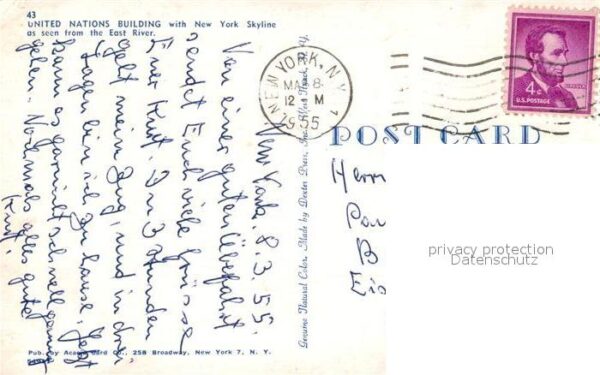 43
UNITED NATIONS BUILDING with New York Skyline
as seen from the East River.
New York, 8.3.55.
Von einer guten Überfahrt
sendet Euch viele Grüsse
Euer Kurt. In 3 Stunden
geht mein Zug, und in drei
Tagen bin ich zu hause. Jetzt
kann es garnicht schnell genug
gehen. Nochmals alles gute
Kurt.
Pub. by Acacia Card Co., 258 Broadway, New York 7, N. Y.
Genuine Natural Color. Made by Dexter Press, Inc.
NEW YORK, N.Y.
MAR 8
12 M
1955
4¢
U.S. POSTAGE
POST CARD
Herrn
Pau
B
Eis
privacy protection
Datenschutz